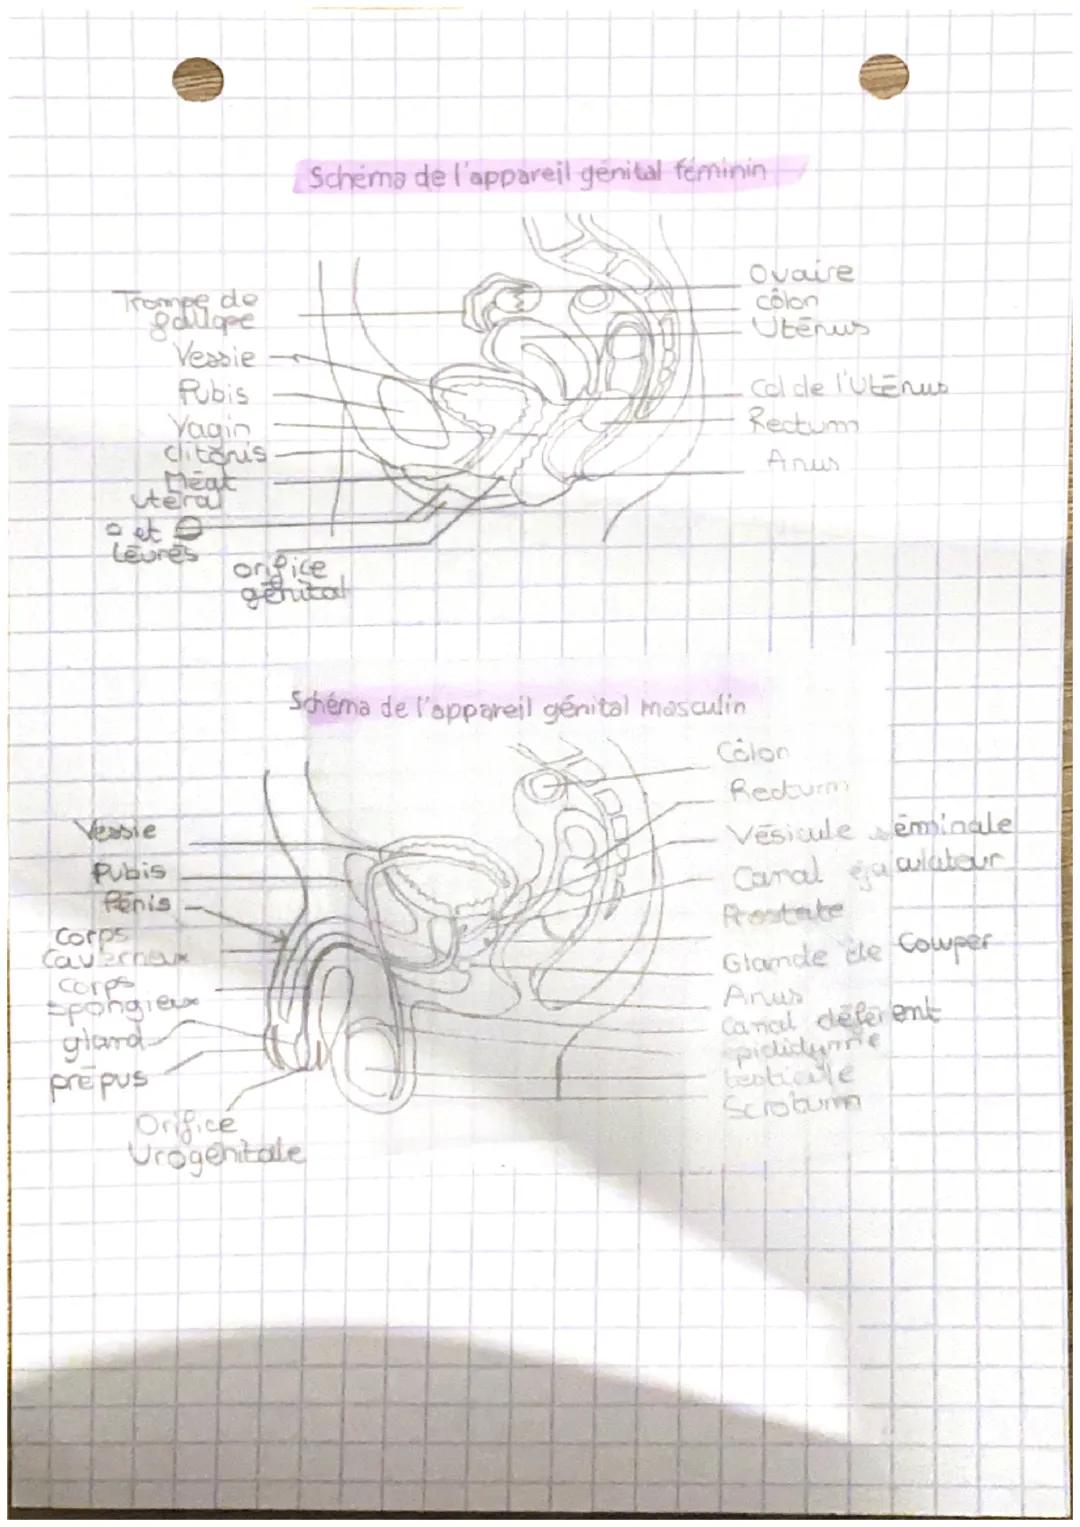 Schéma de l'appareil génital féminin
Trompe de
Vessie
Pubis
Vagin
clitoris
Méat
utéral
et
Lèvres
orifice
génital
Ovaire
côlon
Utérus
Col de l'Utérus
Rectum
Anus
Schéma de l'appareil génital masculin
Vessie
Pubis
Pénis
Corps
Caverneux
Corps
Spongieux
gland
prépus
Orifice
Urogénitale
Côlon
Rectum
Vésicule séminale
Canal éjaculateur
Prostate
Glande de Cowper
Anus
Canal déférent
épididyme
testicule
Scrotum